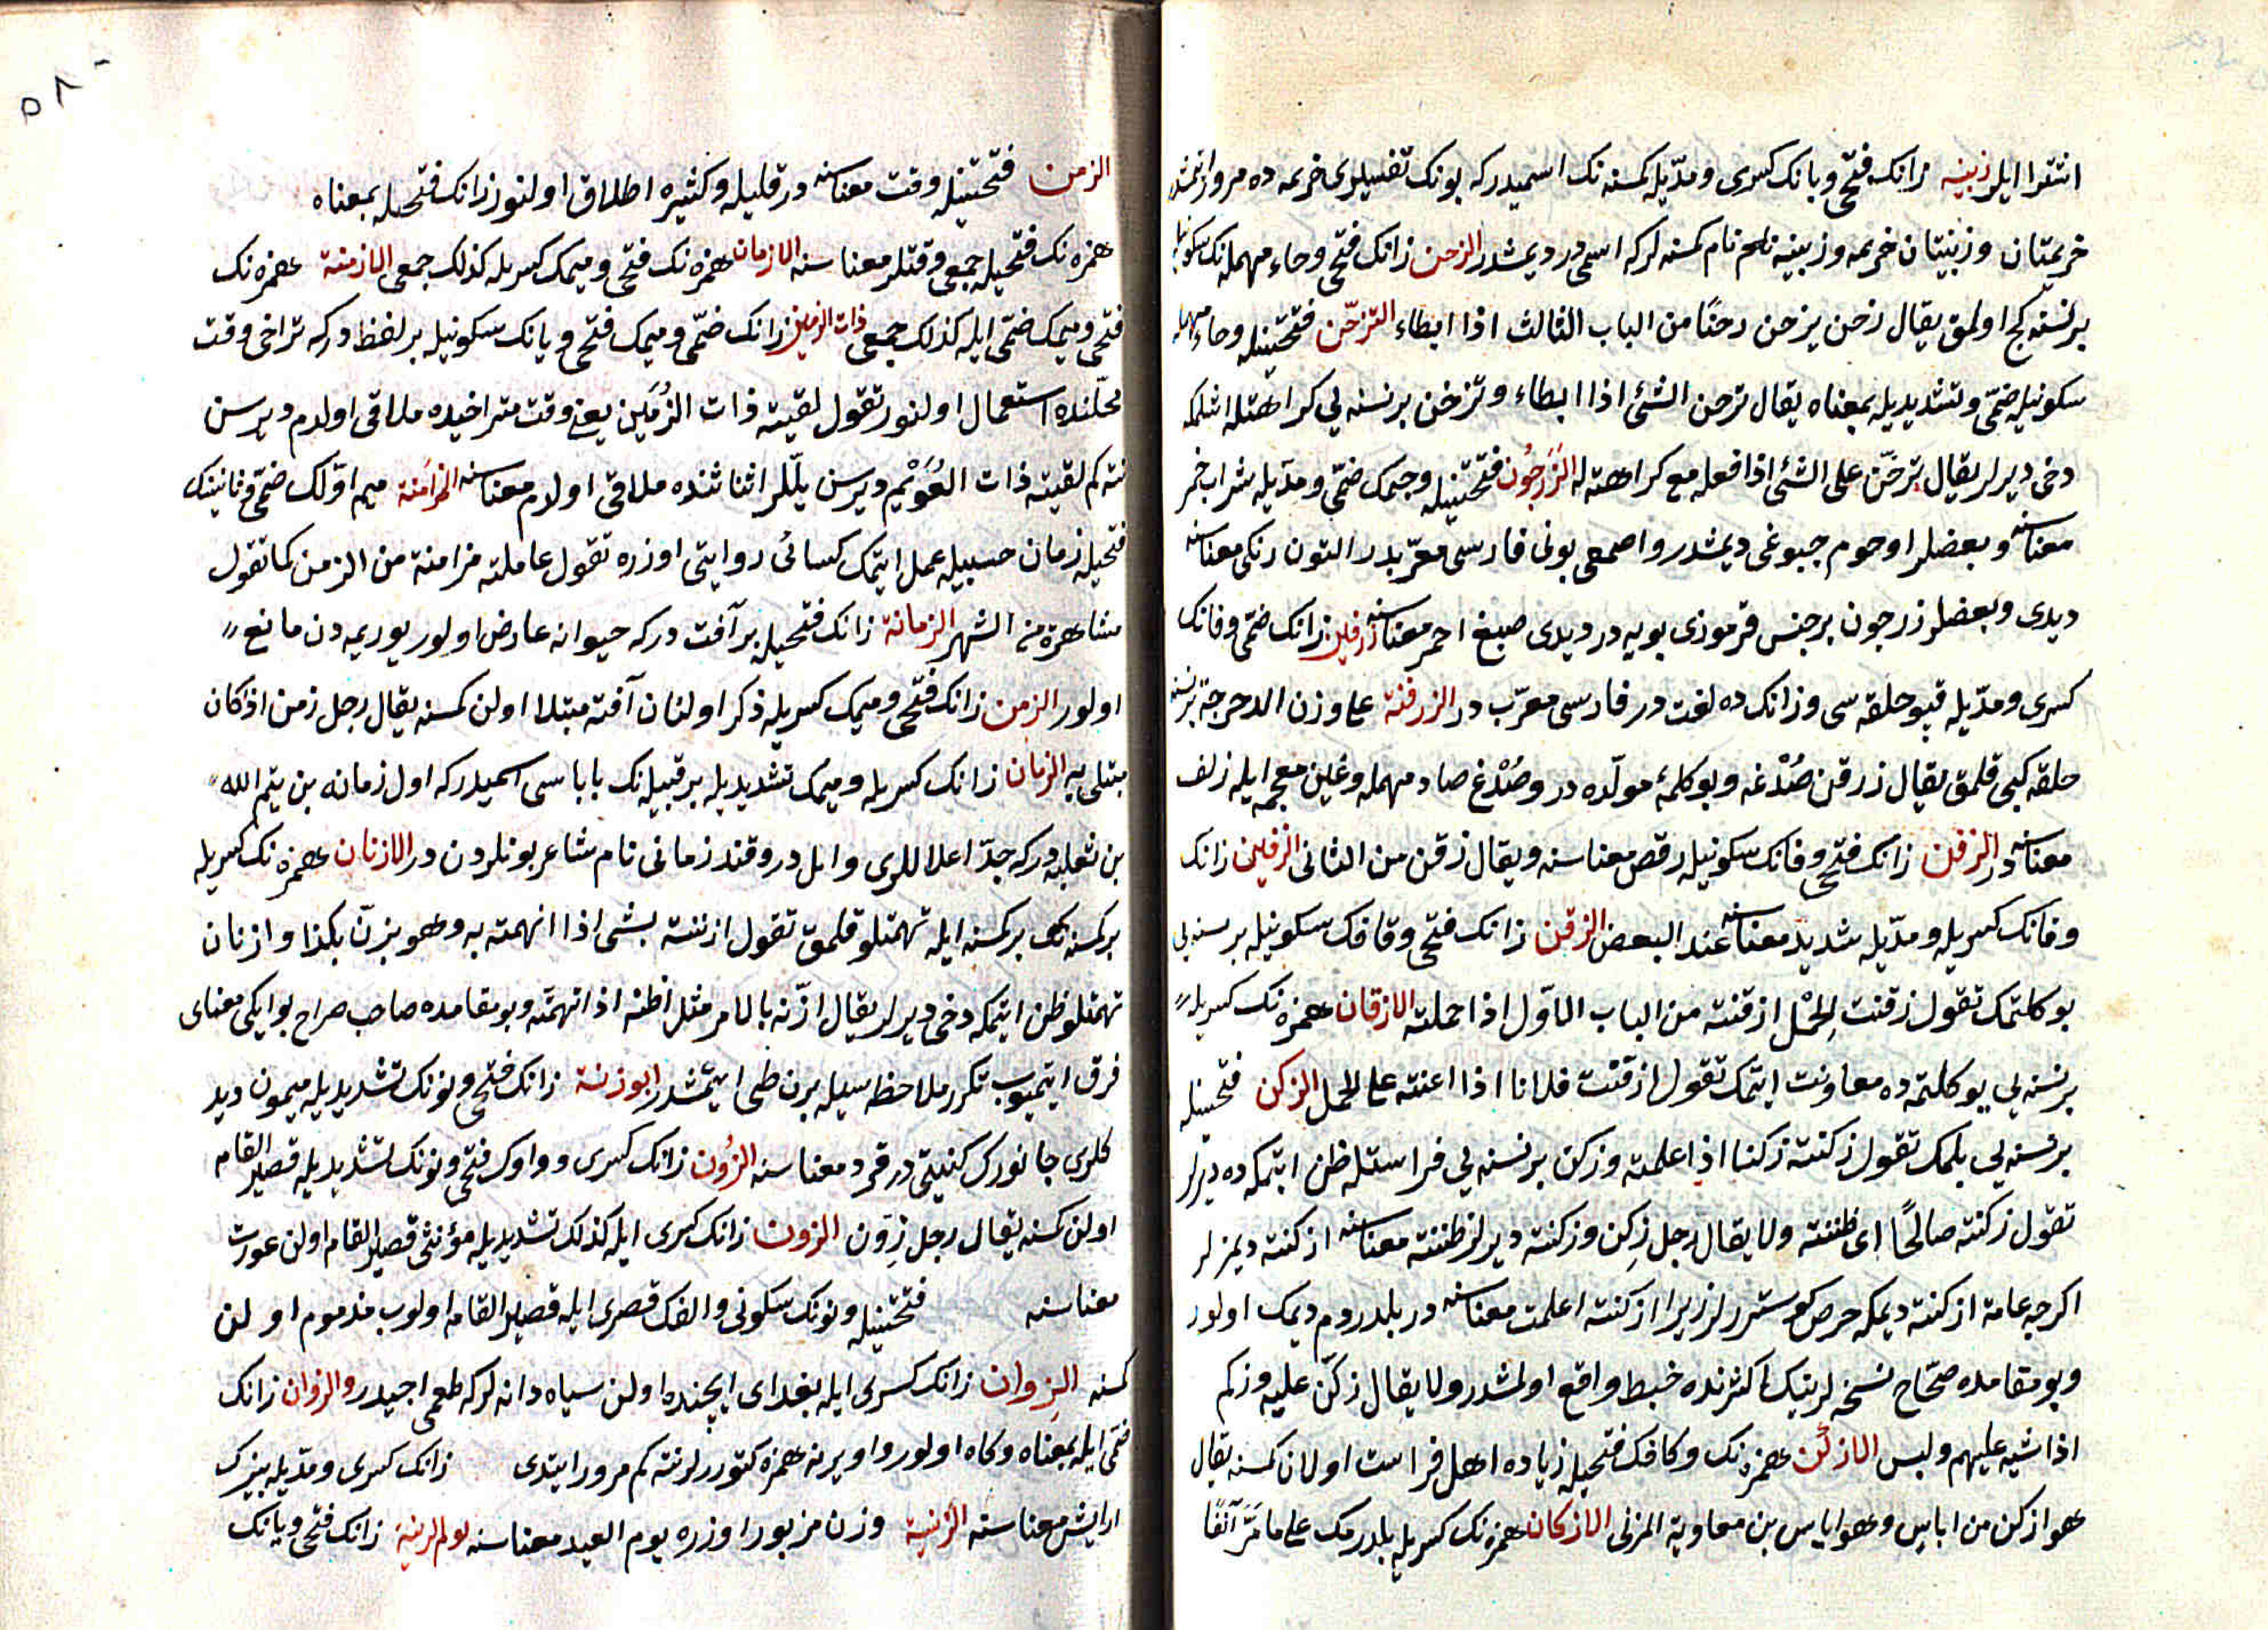 انتقرا ایلر زبینه زانک فتحی وبانک کسری ومدّیله کمسنه نک اسمیدرکه بونک تفسیلری خریمه ده مرور ایتمشدر
خریمتان وزبنیتان خریمه وزبینه نام کمسنه لرکه اسمی در دیمشدر الزحن زانک فتحی وحاء مهمله نک سکونیله
برنسنه کج اولمق یقال زحن یزحن زحنًا من الباب الثالث اذا ابطاء التزحّن فتحتینله وحاء مهمله
سکونیله ضمّی وتشدیدیله بمعناه یقال تزحن الشئ اذا ابطاء وتزخن برنسنه یی کراهتله اشلمکه
دخی دیرلر یقال تزخّن علی الشئ اذا فعله مع کراهته له الزَرَجُون فتحتینله وجیمک ضمّی ومدّیله شراب خمر
معناسنه وبعضلر اوحوم جبوغی دیمشدر واصمعی بونی فارسی معرّبدر التون رنکی معناسنه
دیدی وبعضلر زرجون برجنس قرموزی بویه در دیدی صبغ احمر معناسنه زرفین زانک ضمّی وفانک
کسری ومدّیله قپو حلقه سی وزانک ده لغت در فارسی معرّب در الزرفنة علی وزن الدحرجة برنسنه
حلقه کبی قلمق یقال زرفن صُدْغه وبو کلمهٔ مولّده در وصُدْغ صاد مهمله وغین معجمه ایله زلف
معناسنه در الزفن زانک فتحی وفانک سکونیله رقص معناسنه ویقال زفن من الثانی الزفین زانک
وفانک کسریله ومدّیله شدید معناسنه عند البعض الزقن زانک فتحی وقافک سکونیله برنسنه یی
بوکلتمک تقول زقنت الحمْل ازقنته من الباب الاوّل اذا حملته الازقان همزه نک کسریله
برنسنه یی یوکلتمه ده معاونت ایتمک تقول ازقنت فلانا اذا اعنته علی الحمل الزکن فتحتینله
برنسنه یی بلمک تقول زکنته زکنا اذا علمته وزکن برنسنه یی فراستله ظن ایتمکه ده دیرلر
تقول زکنته صالحًا ای ظننته ولا یقال رجل زکِن وزکنته دیرلر ظننته معناسنه ازکنته دیمزلر
اکرجه عامة ازکنته دیمکه حرص کوستررلر زیرا ازکنته اعلمت معناسنه در بلدردم دیمک اولور
وبو مقامده صحّاح نسخه لرینک اکثرنده خبط واقع اولمشدر ولا یقال زکّن علیه وزکم
اذا شبه علیهم ولبس الازکن همزه نک وکافک فتحیله زیاده اهل فراست اولان کمسنه یقال
هو ازکن من ایاس وهو ایاس بن معاویة المزنی الازکان همزه نک کسریله بلدرمک علی ما مَرَّ آنفًا
٥٨٠
الزمن فتحتینله وقت معناسنه در قلیله وکثیره اطلاق اولنور زانک فتحیله بمعناه
همزه نک فتحیله جمعی وقتلر معناسنه الازمان همزه نک فتحی ومیمک کسریله کذلک جمعی الازمنة همزه نک
فتحی ومیمک ضمّی ایله کذلک جمعی ذات الزمین زانک ضمّی ومیمک فتحی ویانک سکونیله بر لفظدرکه تراخی وقت
محلّنده استعمال اولنور تقول لقیته ذات الزُمَین یعنی وقت متراخیده ملاقی اولدم دیرسن
نته کم لقیته ذات العُوَیْم دیرسن ییللر اثناثنده ملاقی اولدم معناسنه المزامنة میم اوّلک ضمّی وثانینک
فتحیله زمان حسبیله عمل ایتمک کسائی روایتی اوزره تقول عاملته مزامنة من الزمن کما تقول
مشاهرة من الشهر الزمانة زانک فتحیله بر آفت درکه حیوانه عارض اولور یوریمه دن مانع
اولور الزمن زانک فتحی ومیمک کسریله ذکر اولنان آفته مبتلا اولن کمسنه یقال رجل زمن اذا کان
مبتلی به الزمان زانک کسریله ومیمک تشدیدیله بر قبیله نک باباسی اسمیدرکه اول زمانه بن تیم الله
بن ثعلبه درکه جدّ اعلالری وایل در وفند زمانی نام شاعر بونلردن در الازنان همزه نک کسریله
برکمسنه یک برکمسنه ایله تهمتلو قلمق تقول ازننته بشئ اذا اتهمته به وهو یزنّ بکذا وازنان
تهمتلو ظن ایتمکه دخی دیرلر یقال ازّنه بالامر مثل اظنه اذا اتهمته وبو مقامده صاحب صراح بو ایکی معنای
فرق ایتمیوب تکرر ملاحظه سیله برن طی ایتمشدر ابوزنة زانک فتحی ونونک تشدیدیله میمون دید
کلری جانورک کنیتی در قرد معناسنه الزوُن زانک کسری وواوک فتحی ونونک تشدیدیله قصیر القامه
اولن کمسنه یقال رجل زِوَن الزونة زانک کسری ایله کذلک تشدیدیله مؤنثی قصیر القامه اولن عورت
معناسنه فتحتینله ونونک سکونی والفک قصری ایله قصیر القامه اولوب مذموم اولن
کمسنه الزِوان زانک کسری ایله بغدای ایچنده اولن سیاه دانه لرکه طعمی اجیدر والزوان زانک
ضمّی ایله بمعناه وکاه اولور واو یرنه همزه کتوررلر نته کم مرور ایتدی زانک کسری ومدّیله بیزک
ارایش معناسنه الزینة وزن مزبور اوزره یوم العید معناسنه یوم الزینة زانک فتحی ویانک